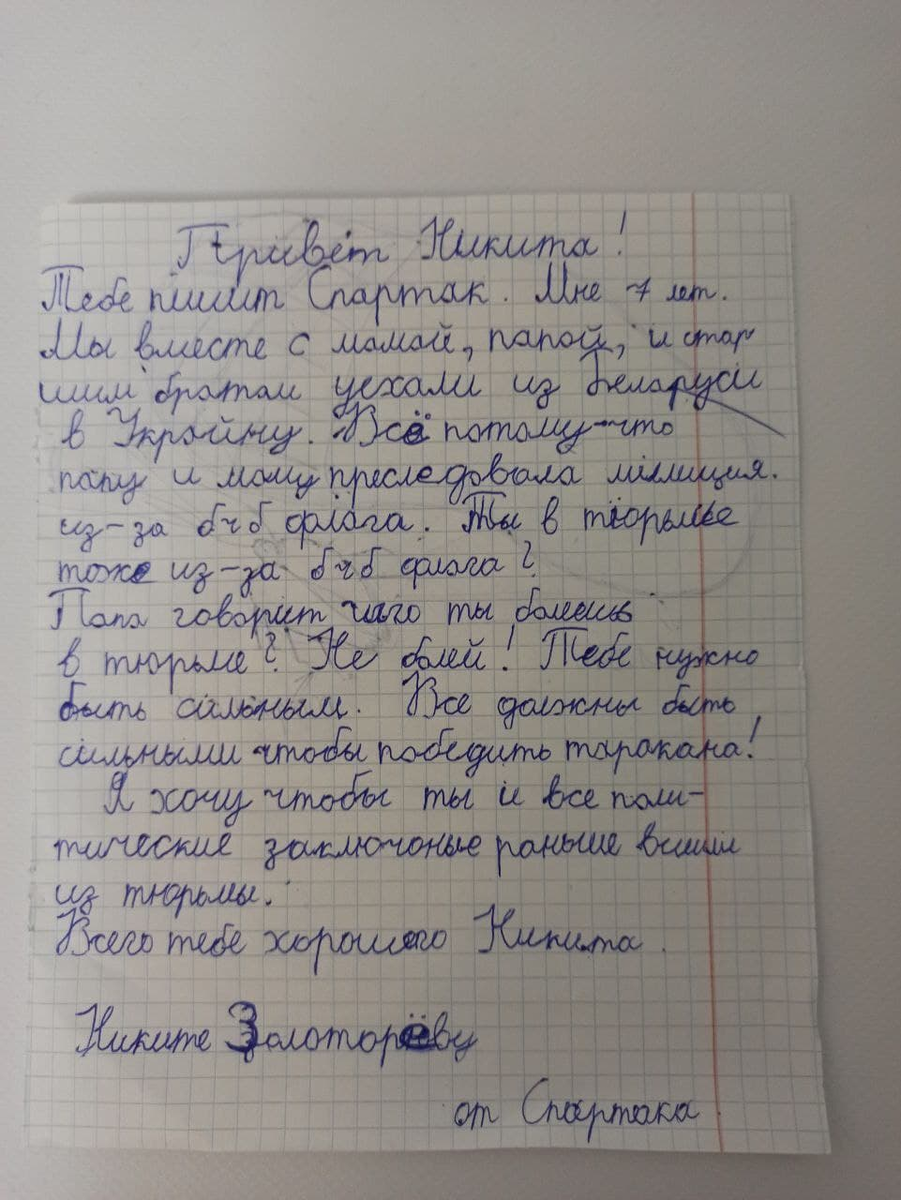 Привет Никита!
Тебе пишит Спартак. Мне 7 лет.
Мы вместе с мамай, папой, и стар
шим братам уехали из Беларуси
в Укройину. Всё потому-что
папу и маму преследовала миллиция.
из-за бчб флага. Ты в тюрьме
тоже из-за бчб флага?
Папа говорит чаго ты болеешь
в тюрьме? Не болей! Тебе нужно
быть сильным. Все должны быть
сильными чтобы победить таракана!
Я хочу чтобы ты и все поли-
тические заключоные раньше вышли
из тюрьмы.
Всего тебе хорошого Никита.
Никите Золоторёву
от Спартака.